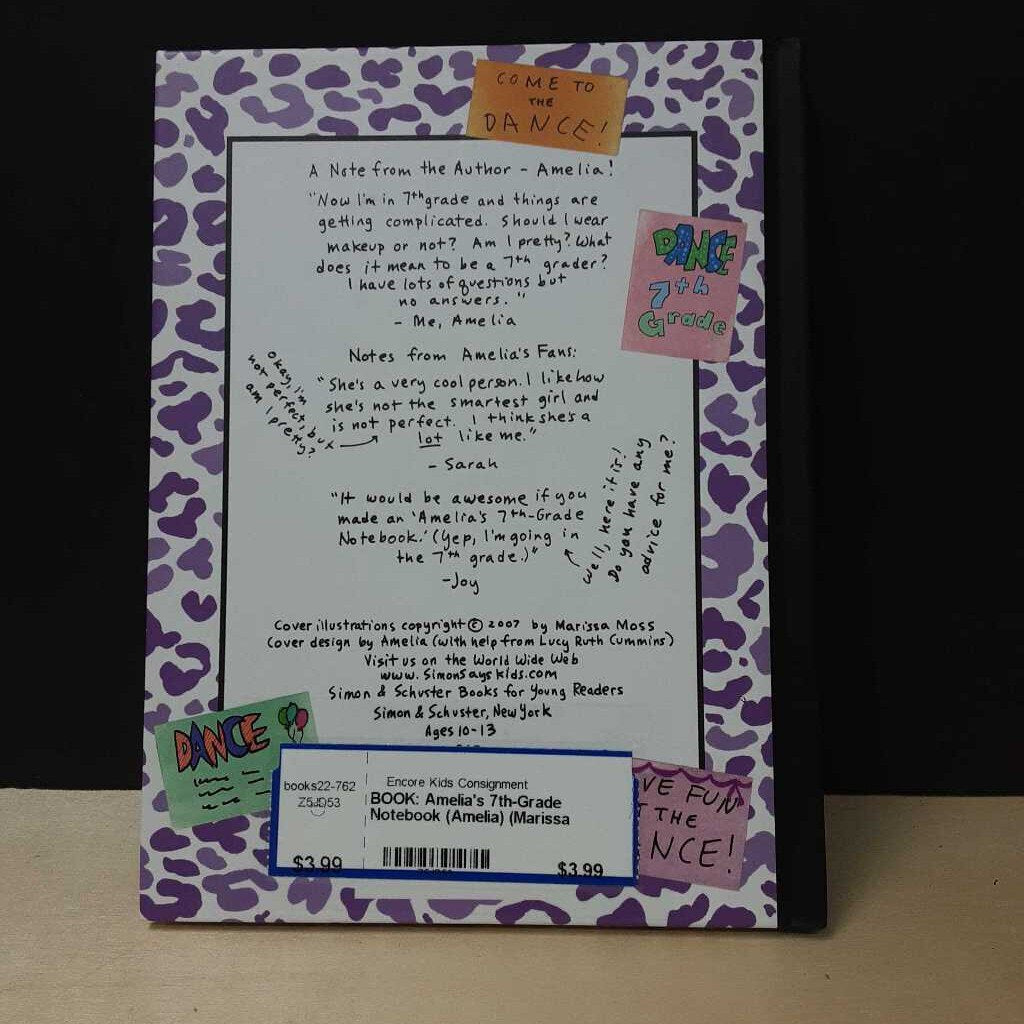 COME TO
THE
DANCE!
A Note from the Author - Amelia!
"Now I'm in 7th grade and things are
getting complicated. Should I wear
makeup or not? Am I pretty? What
does it mean to be a 7th grader?
I have lots of questions but
no answers."
- Me, Amelia
DANCE
7th
Grade
Notes from Amelia's Fans:
"She's a very cool person. I like how
she's not the smartest girl and
is not perfect. I think she's a
lot like me."
- Sarah
Okay, I'm
not perfect, but
am I pretty?
"It would be awesome if you
made an 'Amelia's 7th-Grade
Notebook.' (Yep, I'm going in
the 7th grade.)"
-Joy
Well, here it is!
Do you have any
advice for me?
Cover illustrations copyright © 2007 by Marissa Moss
Cover design by Amelia (with help from Lucy Ruth Cummins)
Visit us on the World Wide Web
www.SimonSaysKids.com
Simon & Schuster Books for Young Readers
Simon & Schuster, New York
Ages 10-13
DANCE
books22-762
Z5JD53
$3.99
Encore Kids Consignment
BOOK: Amelia's 7th-Grade
Notebook (Amelia) (Marissa
$3.99
VE FUN
THE
NCE!